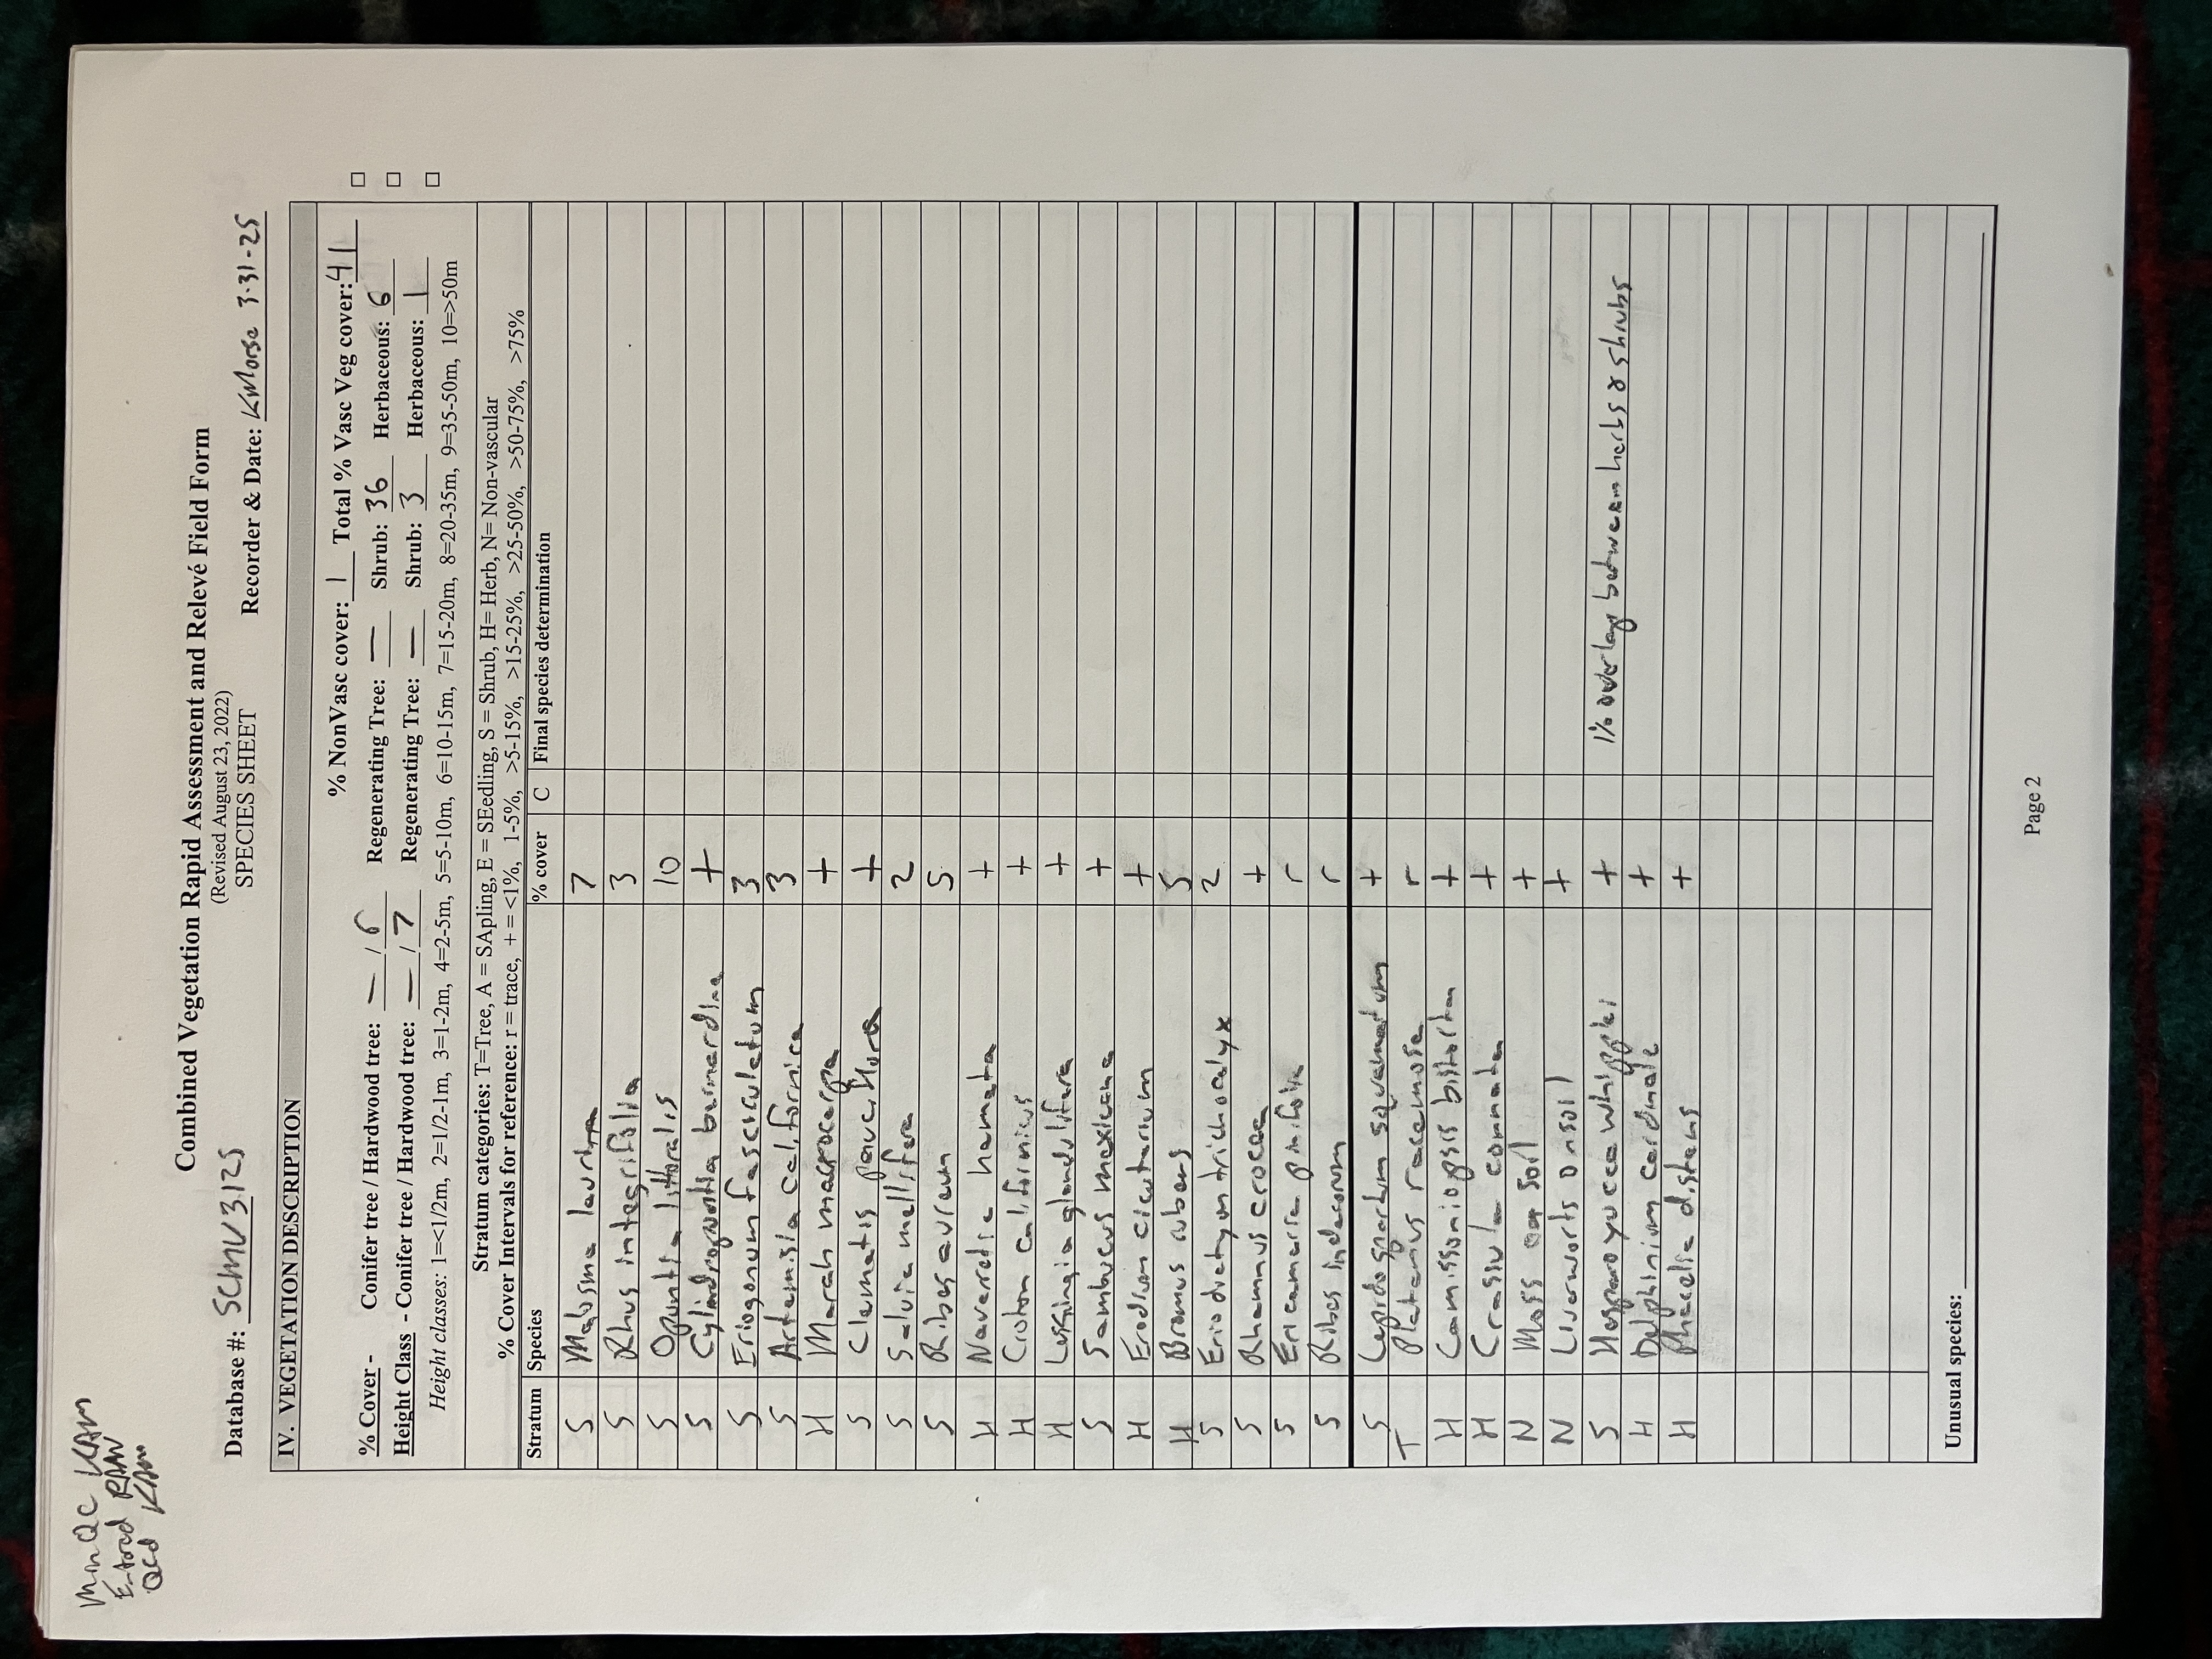 MinQC KAM
Entered RAW
QCd KAM
Combined Vegetation Rapid Assessment and Relevé Field Form
(Revised August 23, 2022)
SPECIES SHEET
Database #: SCMV3125 Recorder & Date: KMorse 3-31-25
IV. VEGETATION DESCRIPTION
% NonVasc cover: 1 Total % Vasc Veg cover: 41
% Cover - Conifer tree / Hardwood tree: — / r Regenerating Tree: — Shrub: 36 Herbaceous: 6
Height Class - Conifer tree / Hardwood tree: — / 7 Regenerating Tree: — Shrub: 3 Herbaceous: 1
Height classes: 1=<1/2m, 2=1/2-1m, 3=1-2m, 4=2-5m, 5=5-10m, 6=10-15m, 7=15-20m, 8=20-35m, 9=35-50m, 10=>50m
Stratum categories: T=Tree, A = SApling, E = SEedling, S = Shrub, H= Herb, N= Non-vascular
% Cover Intervals for reference: r = trace, + = <1%, 1-5%, >5-15%, >15-25%, >25-50%, >50-75%, >75%
Stratum Species % cover C Final species determination
S Malosma laurina 7
S Rhus integrifolia 3
S Opuntia littoralis 10
S Cylindropuntia bernardina +
S Eriogonum fasciculatum 3
S Artemisia californica 3
H Marah macrocarpa +
S Clematis pauciflora +
S Salvia mellifera 2
S Ribes aureum 5
H Navarretia hamata +
H Croton californicus +
H Lessingia glandulifera +
S Sambucus mexicana +
H Erodium cicutarium +
H Bromus rubens 5
S Eriodictyon trichocalyx 2
S Rhamnus crocea +
S Ericameria pinifolia r
S Ribes indecorum r
S Lepidospartum squamatum +
T Platanus racemosa r
H Camissoniopsis bistorta +
H Crassula connata +
N Moss on soil +
N Liverworts on soil +
S Hesperoyucca whipplei + 1% overlap between herbs & shrubs
H Delphinium cardinale +
H Phacelia distans +
Unusual species:
Page 2